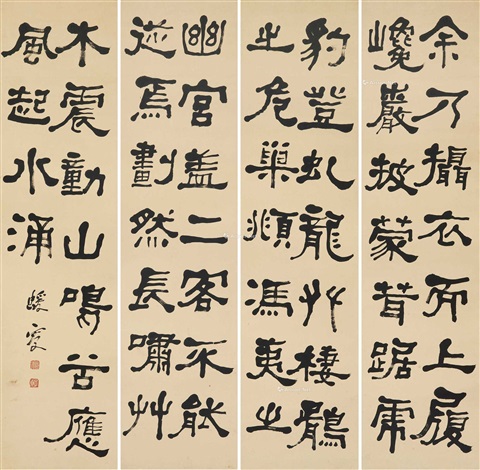 余乃攝衣而上履
巉巖披蒙茸踞虎
豹登虬龍𠬜棲鶻
之危巢頫馮夷之
幽宮蓋二客不能
從焉劃然長嘯艸
木震動山鳴谷應
風起水涌
蝯叟